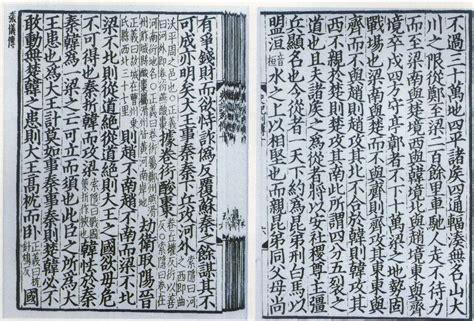 不過三十萬地四平諸侯四通輻湊無名山大
川之限從鄭至梁二百餘里車馳人走不待力
而至梁南與楚境西與韓境北與趙境東與齊
境卒戍四方守亭鄣者不下十萬梁之地勢固
戰場也梁南與楚而不與齊則齊攻其東東與
齊而不與趙則趙攻其北不合於韓則韓攻其
西不親於楚則楚攻其南此所謂四分五裂之
道也且夫諸侯之為從者將以安社稷尊主彊
兵顯名也今從者一天下約為昆弟刑白馬以
盟洹水之上以相堅也而親昆弟同父母尚
有爭錢財而欲恃詐偽反覆蘇秦之餘謀其不
可成亦明矣大王不事秦秦下兵攻河外
據卷衍酸棗
劫衛取陽晉
則趙不南趙不南而梁不北
梁不北則從道絕從道絕則大王之國欲毋危
不可得也秦折韓而攻梁韓怯於秦
秦韓為一梁之亡可立而須也此臣之所為大
王患也為大王計莫如事秦事秦則楚韓必不
敢動無楚韓之患則大王高枕而臥國
張儀傳